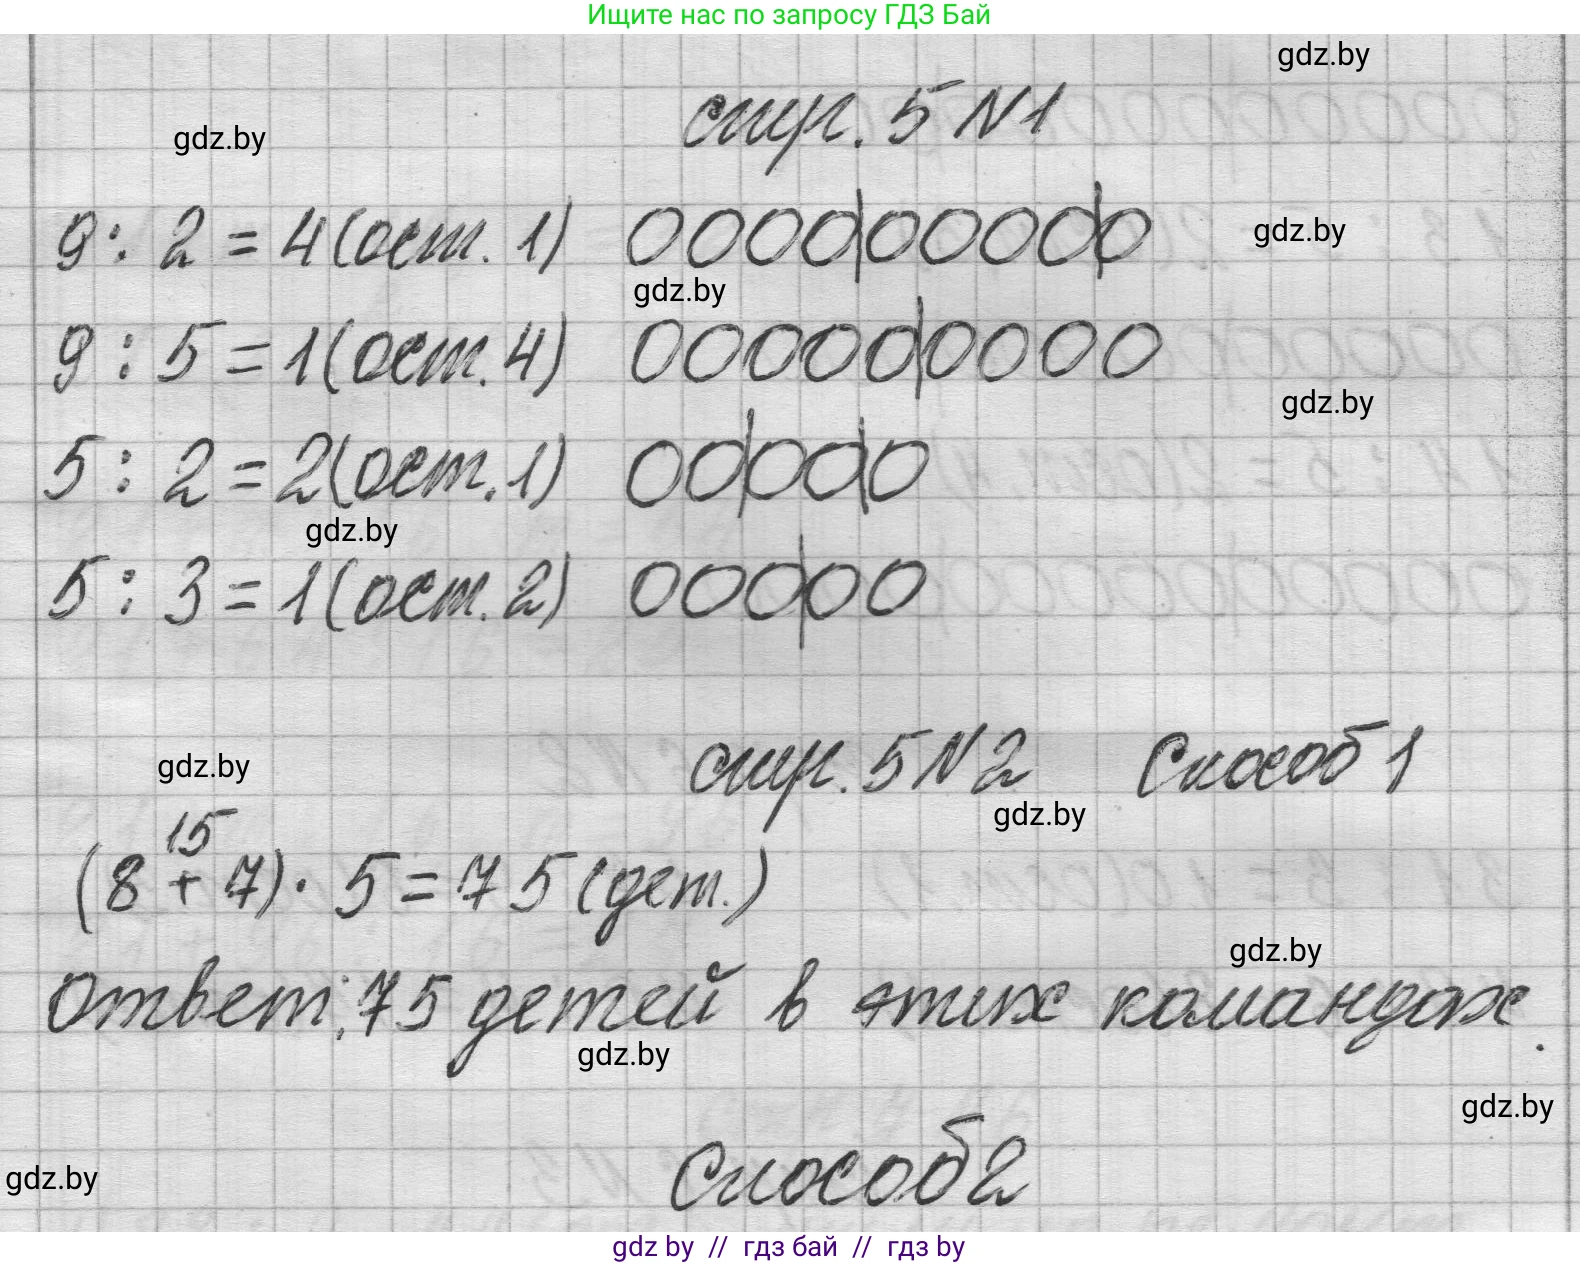 Ищите нас по запросу ГДЗ Бай
gdz.by
стр. 5 N1
gdz.by
9 : 2 = 4 (ост. 1) 0000|0000|0
gdz.by
gdz.by
9 : 5 = 1 (ост. 4) 00000|0000
gdz.by
5 : 2 = 2 (ост. 1) 00|00|0
gdz.by
5 : 3 = 1 (ост. 2) 000|00
стр. 5 N2 Способ 1
gdz.by
gdz.by
15
(8 + 7) · 5 = 75 (дет.)
gdz.by
Ответ: 75 детей в этих командах.
gdz.by
gdz.by
Способ 2
gdz.by
gdz by // гдз бай // гдз by